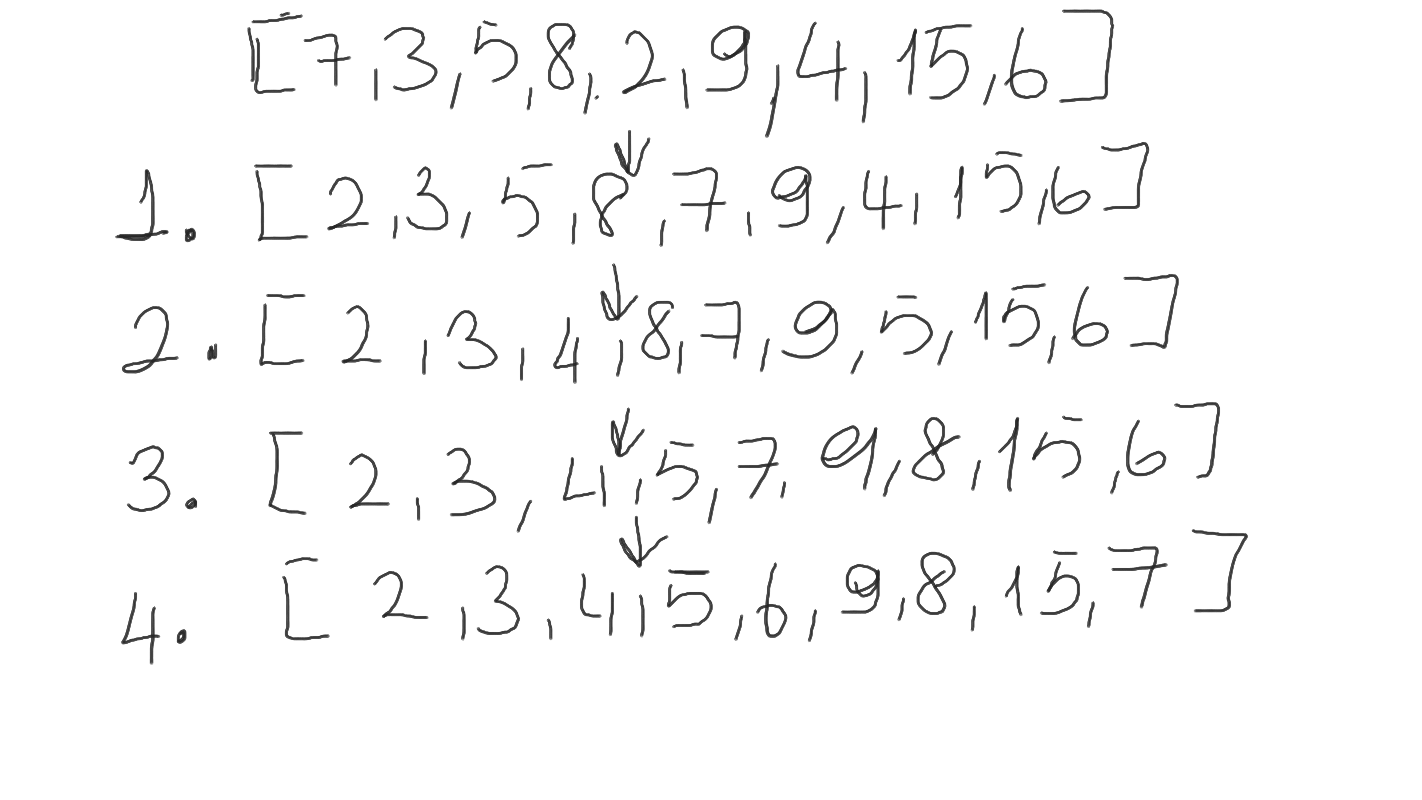 [7,3,5,8,2,9,4,15,6]
1. [2,3,5,8,7,9,4,15,6]
2. [2,3,4,8,7,9,5,15,6]
3. [2,3,4,5,7,9,8,15,6]
4. [2,3,4,5,6,9,8,15,7]